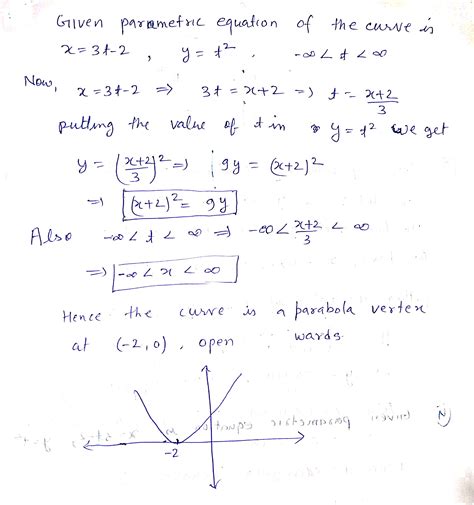 Given parametric equation of the curve is
x = 3t-2 , y = t² . -∞ < t < ∞
Now, x = 3t-2 ⇒ 3t = x+2 ⇒ t = x+2/3
putting the value of t in y = t² we get
y = (x+2/3)² ⇒ 9y = (x+2)²
⇒ (x+2)² = 9y
Also -∞ < t < ∞ ⇒ -∞ < x+2/3 < ∞
⇒ -∞ < x < ∞
Hence the curve is a parabola vertex
at (-2,0) , open wards.
-2